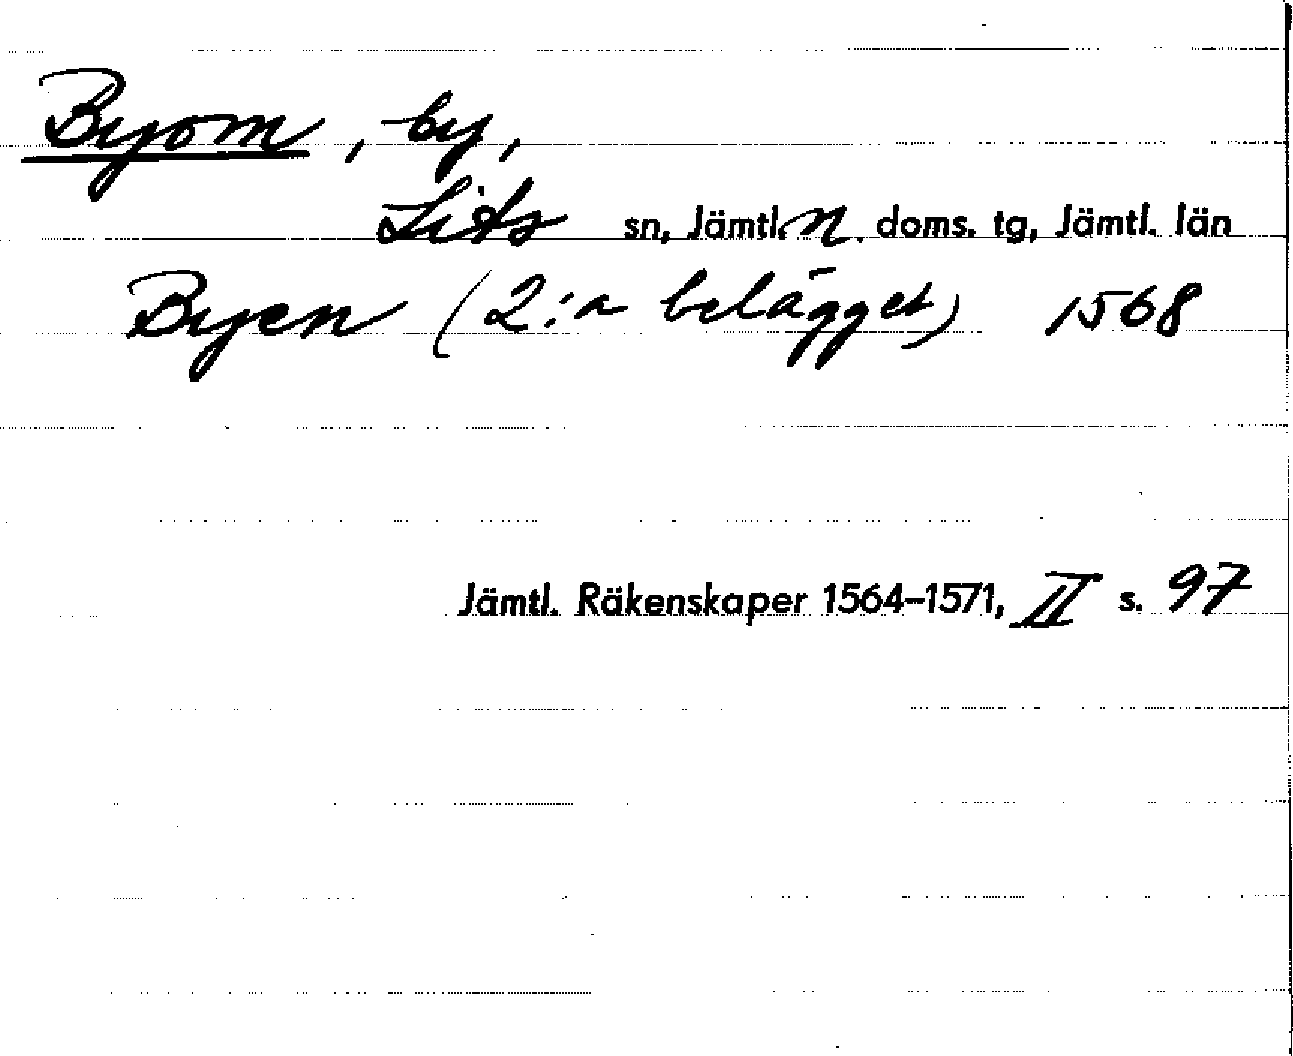 Byom, by,
Lits sn, Jämtl. N. doms. tg, Jämtl. län
Byen (2:a belägget) 1568
Jämtl. Räkenskaper 1564–1571, II s. 97